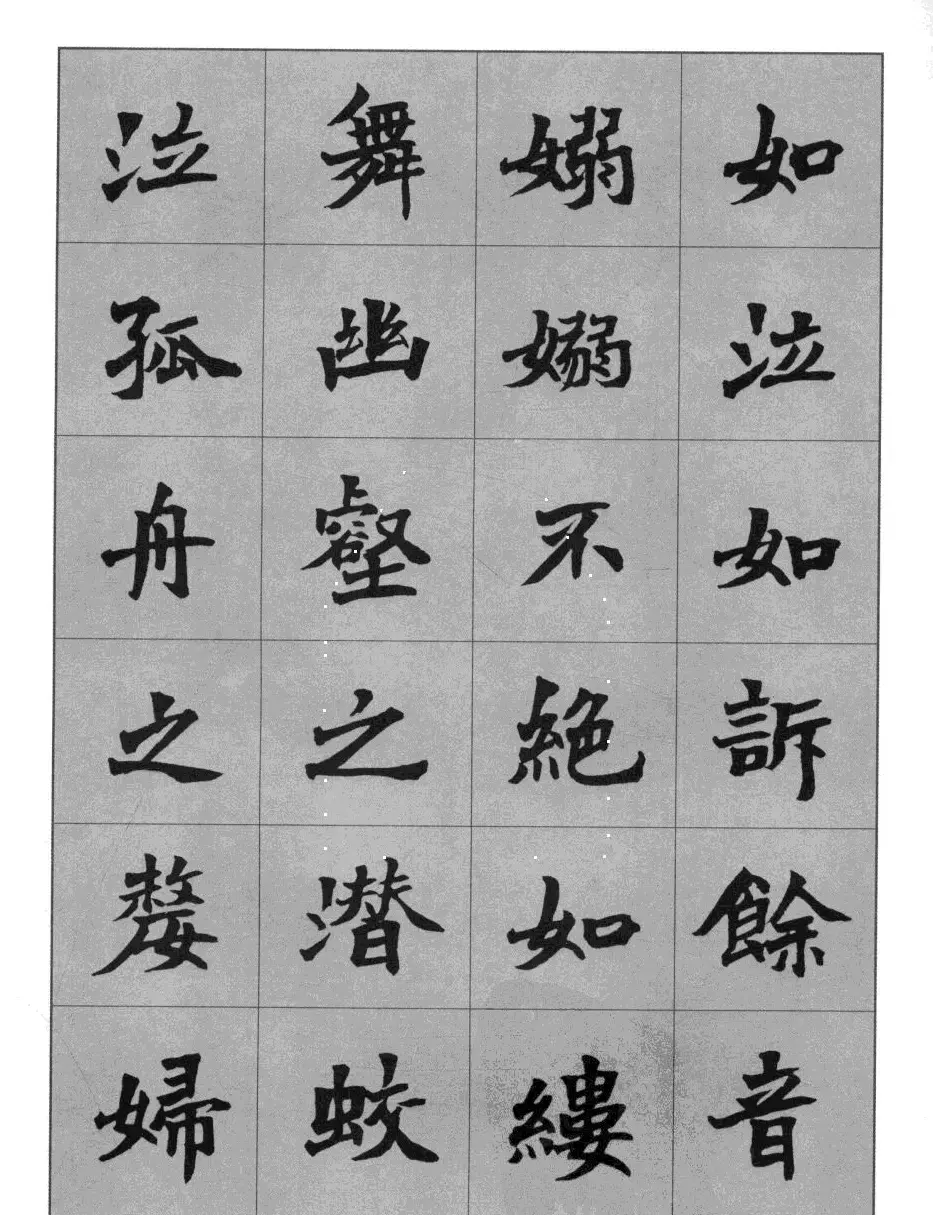 如泣如訴餘音
嫋嫋不絶如縷
舞幽壑之潜蛟
泣孤舟之嫠婦